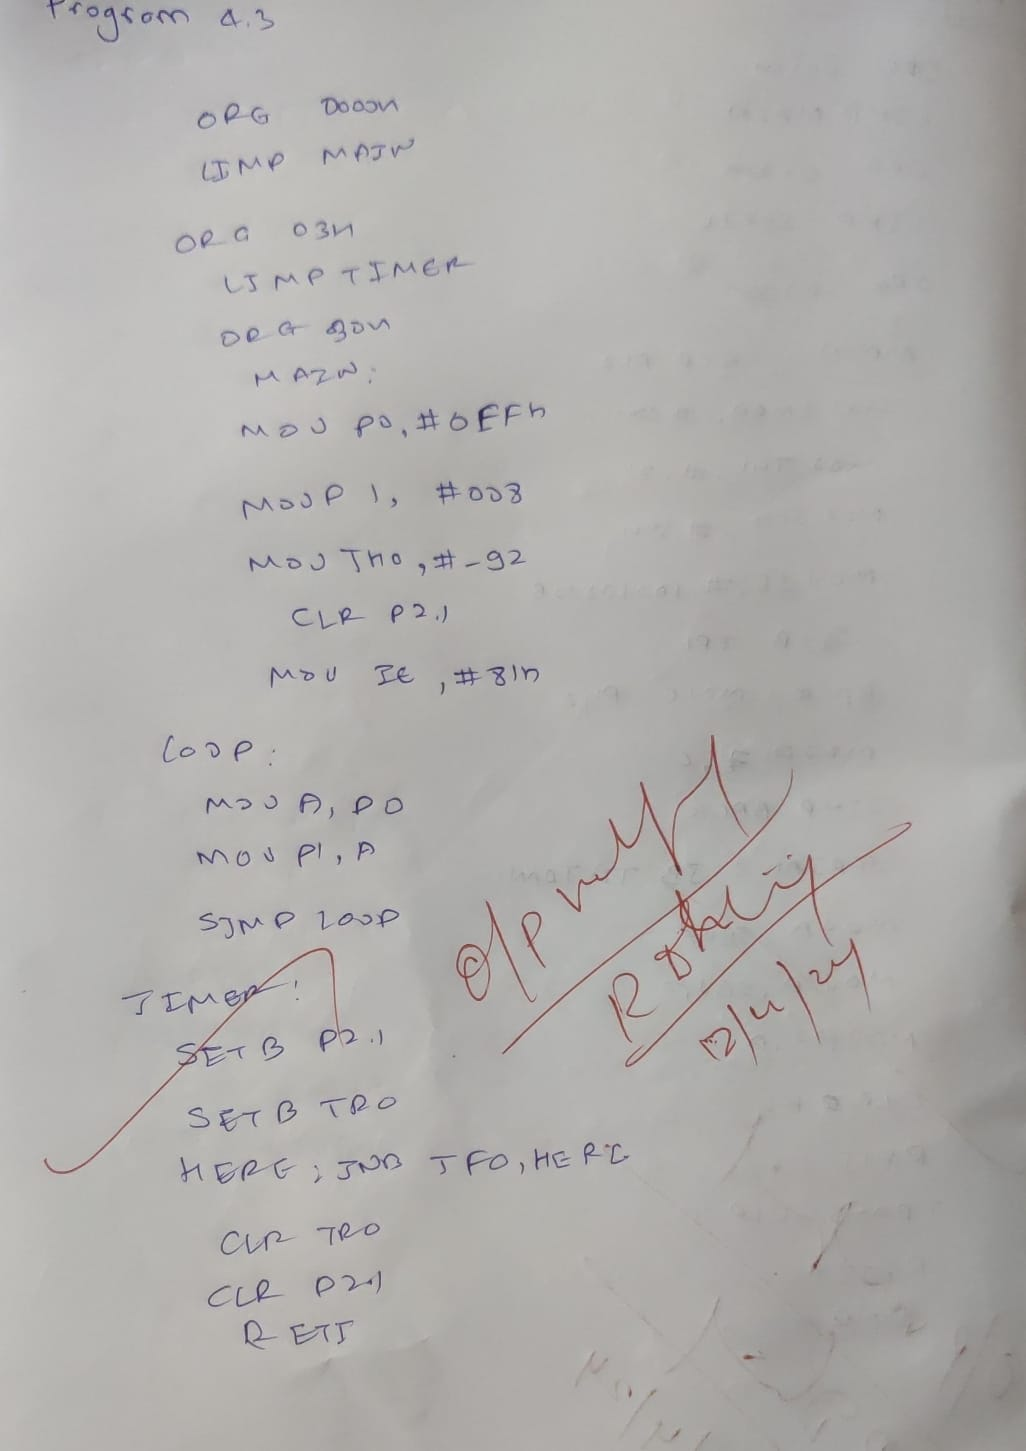 Program 4.3
ORG 0000H
LJMP MAIN
ORG 03H
LJMP TIMER
ORG 30H
MAIN:
MOV P0, #0FFh
MOV P1, #003
MOV TH0, #-92
CLR P2.1
MOV IE, #81h
LOOP:
MOV A, P0
MOV P1, A
SJMP LOOP
TIMER:
SETB P2.1
SETB TR0
HERE; JNB TF0, HERE
CLR TR0
CLR P2.1
RETI
O/P